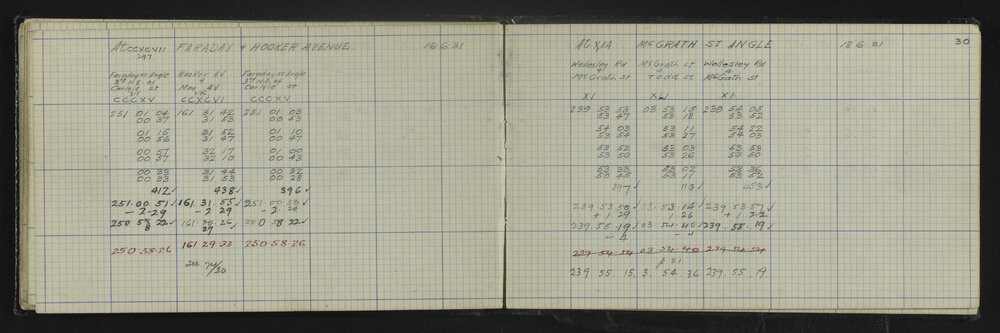 At CCXCVII FARADAY & HOOKER AVENUE 16.6.31
297.
Faraday St Angle Hooker Av Faraday St Angle
3rd N.E. of & 3rd N.E. of
Carlisle St Carlisle St
CCCXV CCXCVI CCCXV
251 01 04 161 31 42 251 01 03
00 37 31 53 00 43
01 15 31 52 01 10
00 56 31 47 00 47
00 57 32 17 01 00
00 57 32 10 00 43
00 33 31 44 00 32
00 33 31 53 00 28
412✓ 438✓ 396✓
251.00.51✓ 161.31.55✓ 251.00.50✓
-2-29 -2 29 -2 28
250 58 22✓ 161 26 250 58 22✓
29
250.58.26 161.29.33 250.58.26
see 74/30
At XIA McGRATH ST ANGLE 18.6.31 30
Wellesley Rd McGrath St Wellesley Rd
McGrath St Todd St McGrath St
XI XLI XI
239 53 53 03 53 15 239 54 05
53 47 53 18 53 52
54 03 53 11 54 22
53 54 53 27 54 03
53 52 53 03 53 53
53 50 53 26 53 50
53 33 53 02 53 36
53 45 53 11 53 52
397✓ 113✓ 453✓
239.53.50✓ 53.14✓ 239.53.57✓
+1.29 1 26 +1.22
239.55.19✓ 03.54.40✓ 239.55.19✓
-4 -4
239.54.54 03.54.40 239.54.54
239.55.15. 3.54.36 239.55.19.